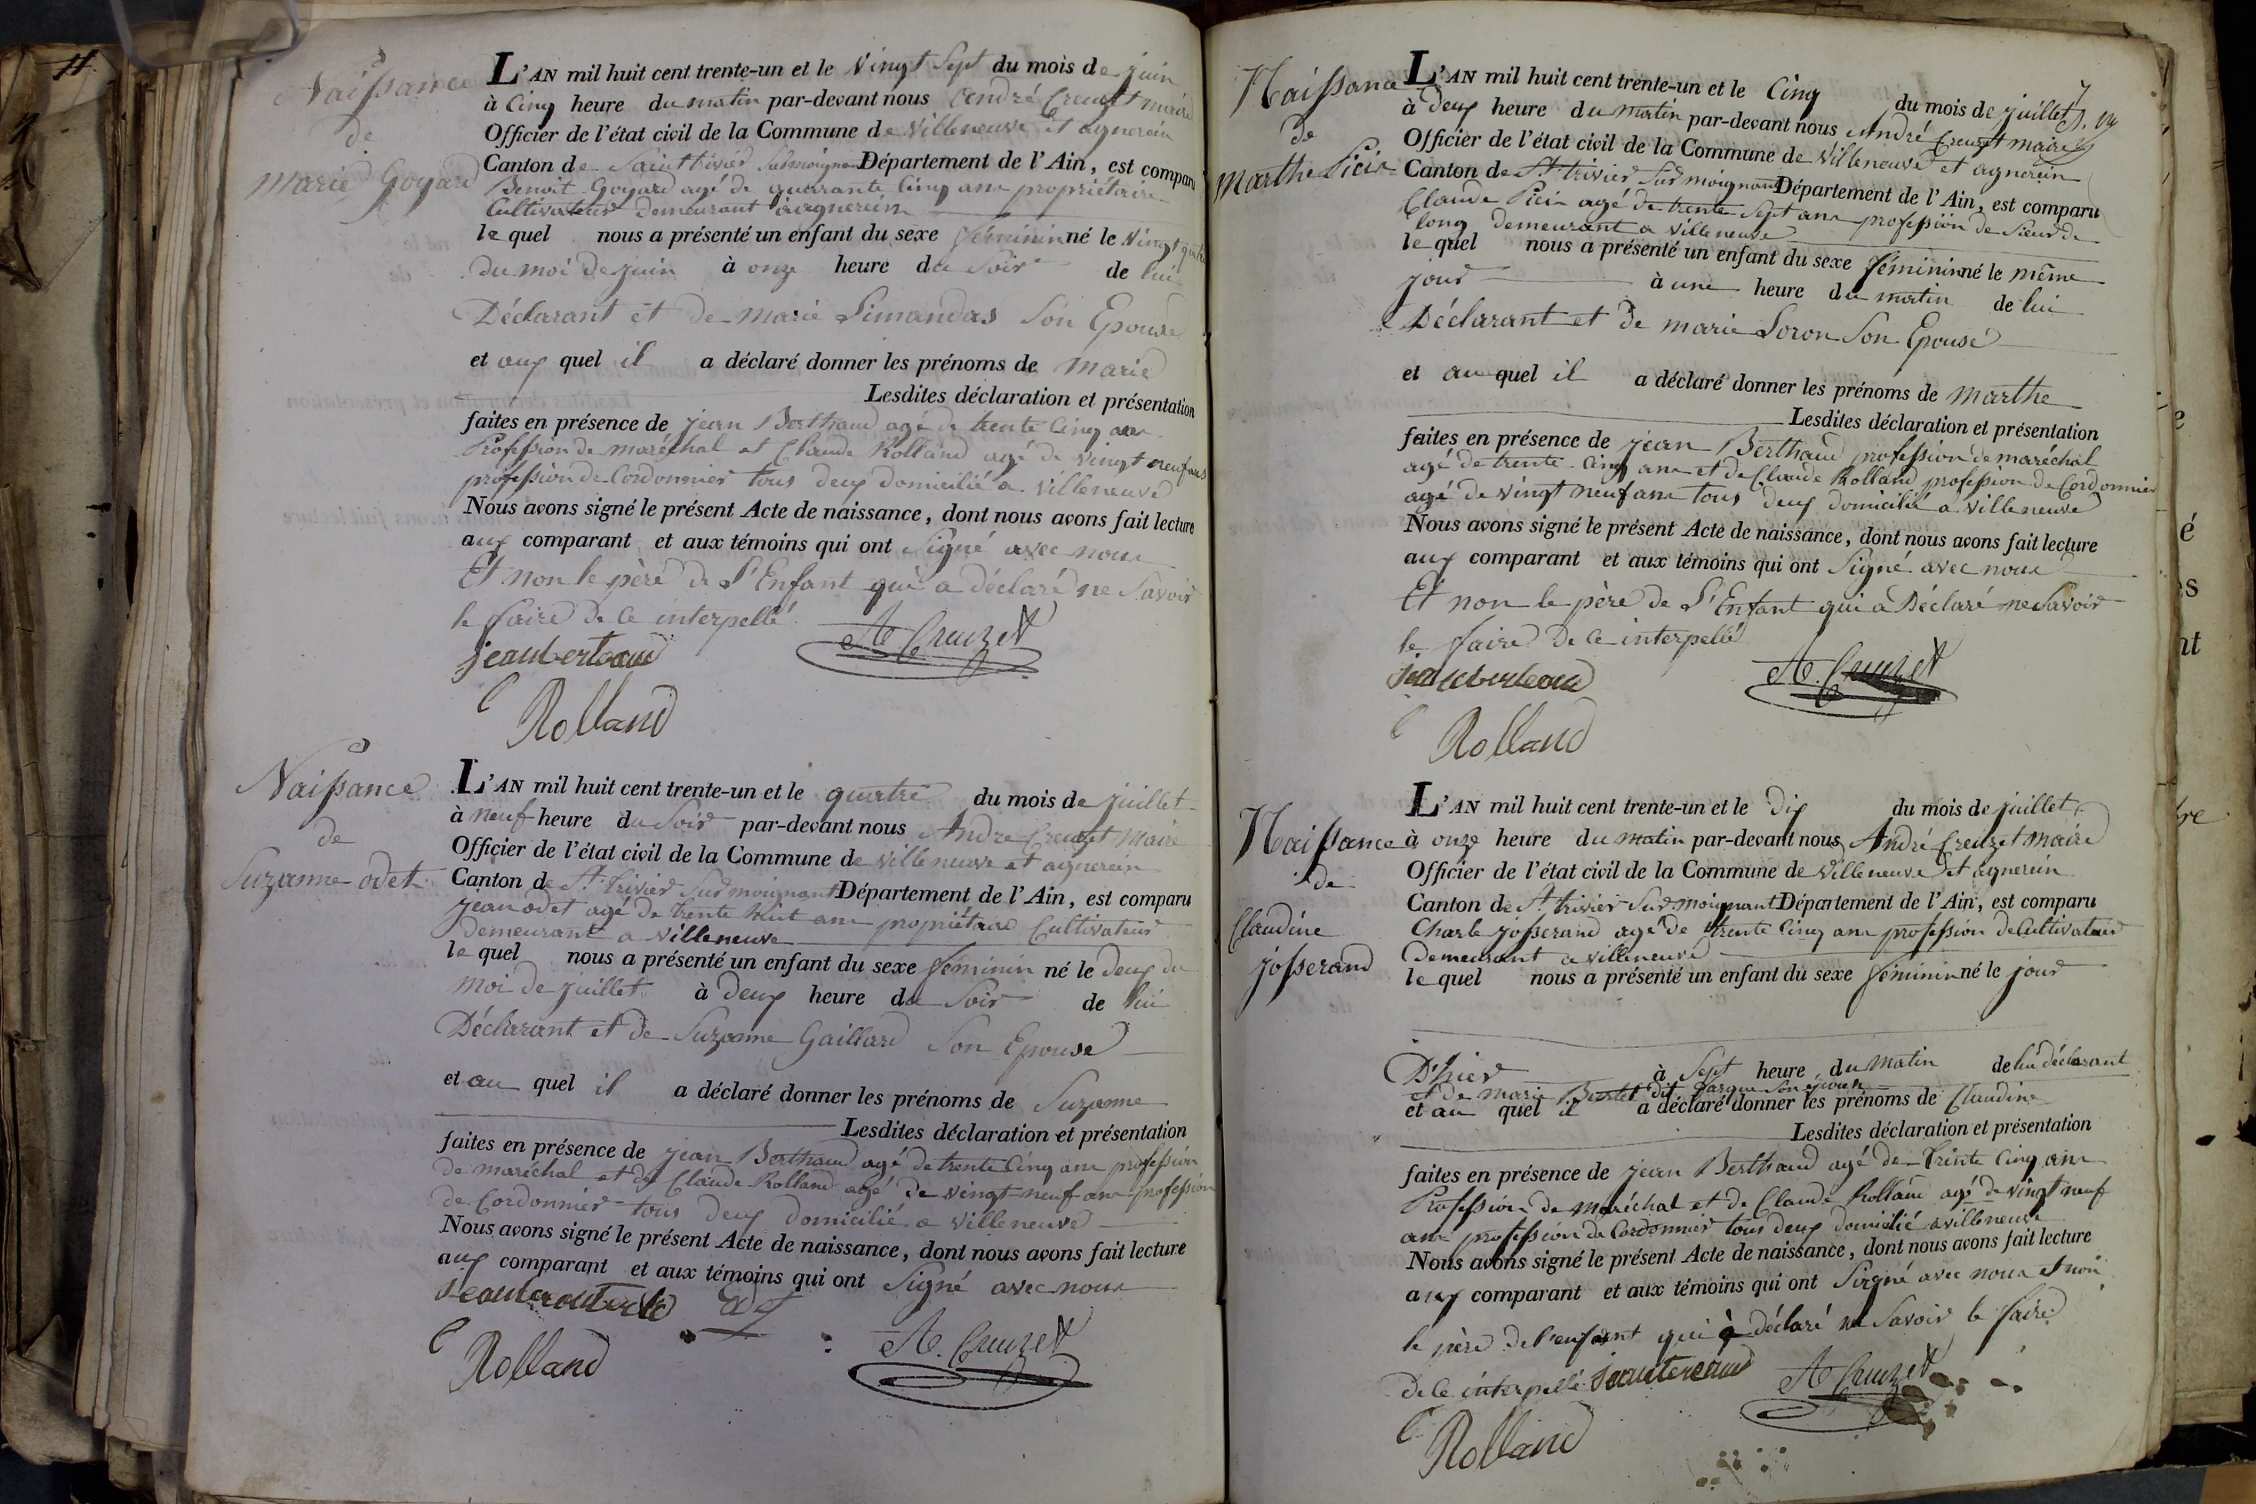 11
Naissance
de
Marie Goyard
L'AN mil huit cent trente-un et le Vingt Sept du mois de juin
à Cinq heure du matin par-devant nous André Creuzet maire
Officier de l'état civil de la Commune de Villeneuve et agnerein
Canton de Saint trivier Sur moignant Département de l'Ain, est comparu
Benoit Goyard agé de quarante Cinq ans propriétaire
Cultivateur demeurant à agnerein
le quel nous a présenté un enfant du sexe féminin né le Vingt quatre
du moi de juin à onze heure du Soir de lui
Déclarant et de marie Limandas Son Epouse
et aux quel il a déclaré donner les prénoms de Marie
Lesdites déclaration et présentation
faites en présence de jean Berthaud agé de trente Cinq ans
Profession de maréchal et Claude Rolland agé de vingt neuf ans
profession de Cordonnier tous deux domicilié a villeneuve
Nous avons signé le présent Acte de naissance, dont nous avons fait lecture
aux comparant et aux témoins qui ont Signé avec nous
Et non le père de L'Enfant qui a déclaré ne Savoir
le faire de ce interpellé
jeanbertaud A Creuzet
C Rolland
Naissance
de
Suzanne odet
L'AN mil huit cent trente-un et le quatre du mois de juillet
à neuf heure du Soir par-devant nous André Creuzet Maire
Officier de l'état civil de la Commune de Villeneuve et agnerein
Canton de St trivier Sur moignant Département de l'Ain, est comparu
jean odet agé de trente huit ans propriétaire Cultivateur
demeurant a villeneuve
le quel nous a présenté un enfant du sexe féminin né le deux du
moi de juillet à deux heure du Soir de lui
Déclarant et de Suzanne Gaillard Son Epouse
et au quel il a déclaré donner les prénoms de Suzanne
Lesdites déclaration et présentation
faites en présence de jean Berthaud agé de trente Cinq ans profession
de maréchal et de Claude Rolland agé de vingt neuf ans profession
de Cordonnier tous deux domicilié a villeneuve
Nous avons signé le présent Acte de naissance, dont nous avons fait lecture
aux comparant et aux témoins qui ont Signé avec nous
odet
C Rolland A. Creuzet
Naissance
de
Marthe Picis
L'AN mil huit cent trente-un et le Cinq du mois de juillet
à deux heure du matin par-devant nous André Creuzet maire
Officier de l'état civil de la Commune de Villeneuve et agnerein
Canton de St trivier Sur moignant Département de l'Ain, est comparu
Claude Picis agé de trente Sept ans profession de Sieur de
long demeurant a villeneuve
le quel nous a présenté un enfant du sexe féminin né le même
jour à une heure du matin de lui
Déclarant et de marie Loron Son Epouse
et au quel il a déclaré donner les prénoms de Marthe
Lesdites déclaration et présentation
faites en présence de jean Berthaud profession de maréchal
agé de trente Cinq ans et de Claude Rolland profession de Cordonnier
agé de vingt neuf ans tous deux domicilié a villeneuve
Nous avons signé le présent Acte de naissance, dont nous avons fait lecture
aux comparant et aux témoins qui ont Signé avec nous
Et non le père de L'Enfant qui a Déclaré ne Savoir
le faire de ce interpellé
A. Creuzet
C Rolland
Naissance
de
Claudine
josserand
L'AN mil huit cent trente-un et le dix du mois de juillet
à onze heure du matin par-devant nous André Creuzet Maire
Officier de l'état civil de la Commune de Villeneuve et agnerein
Canton de St trivier Sur moignant Département de l'Ain, est comparu
Charle josserand agé de trente Cinq ans profession de Cultivateur
Demeurant a villeneuve
le quel nous a présenté un enfant du sexe féminin né le jour
D'hier à Sept heure du matin de lui déclarant
et de marie dit Son épouse
et au quel il a déclaré donner les prénoms de Claudine
Lesdites déclaration et présentation
faites en présence de jean Berthaud agé de trente Cinq ans
Profession de Maréchal et de Claude Rolland agé de vingt neuf
ans profession de Cordonnier tous deux domicilié a villeneuve
Nous avons signé le présent Acte de naissance, dont nous avons fait lecture
aux comparant et aux témoins qui ont Signé avec nous et non
le père de l'enfant qui a déclaré ne Savoir le faire
De ce interpellé A Creuzet
C Rolland